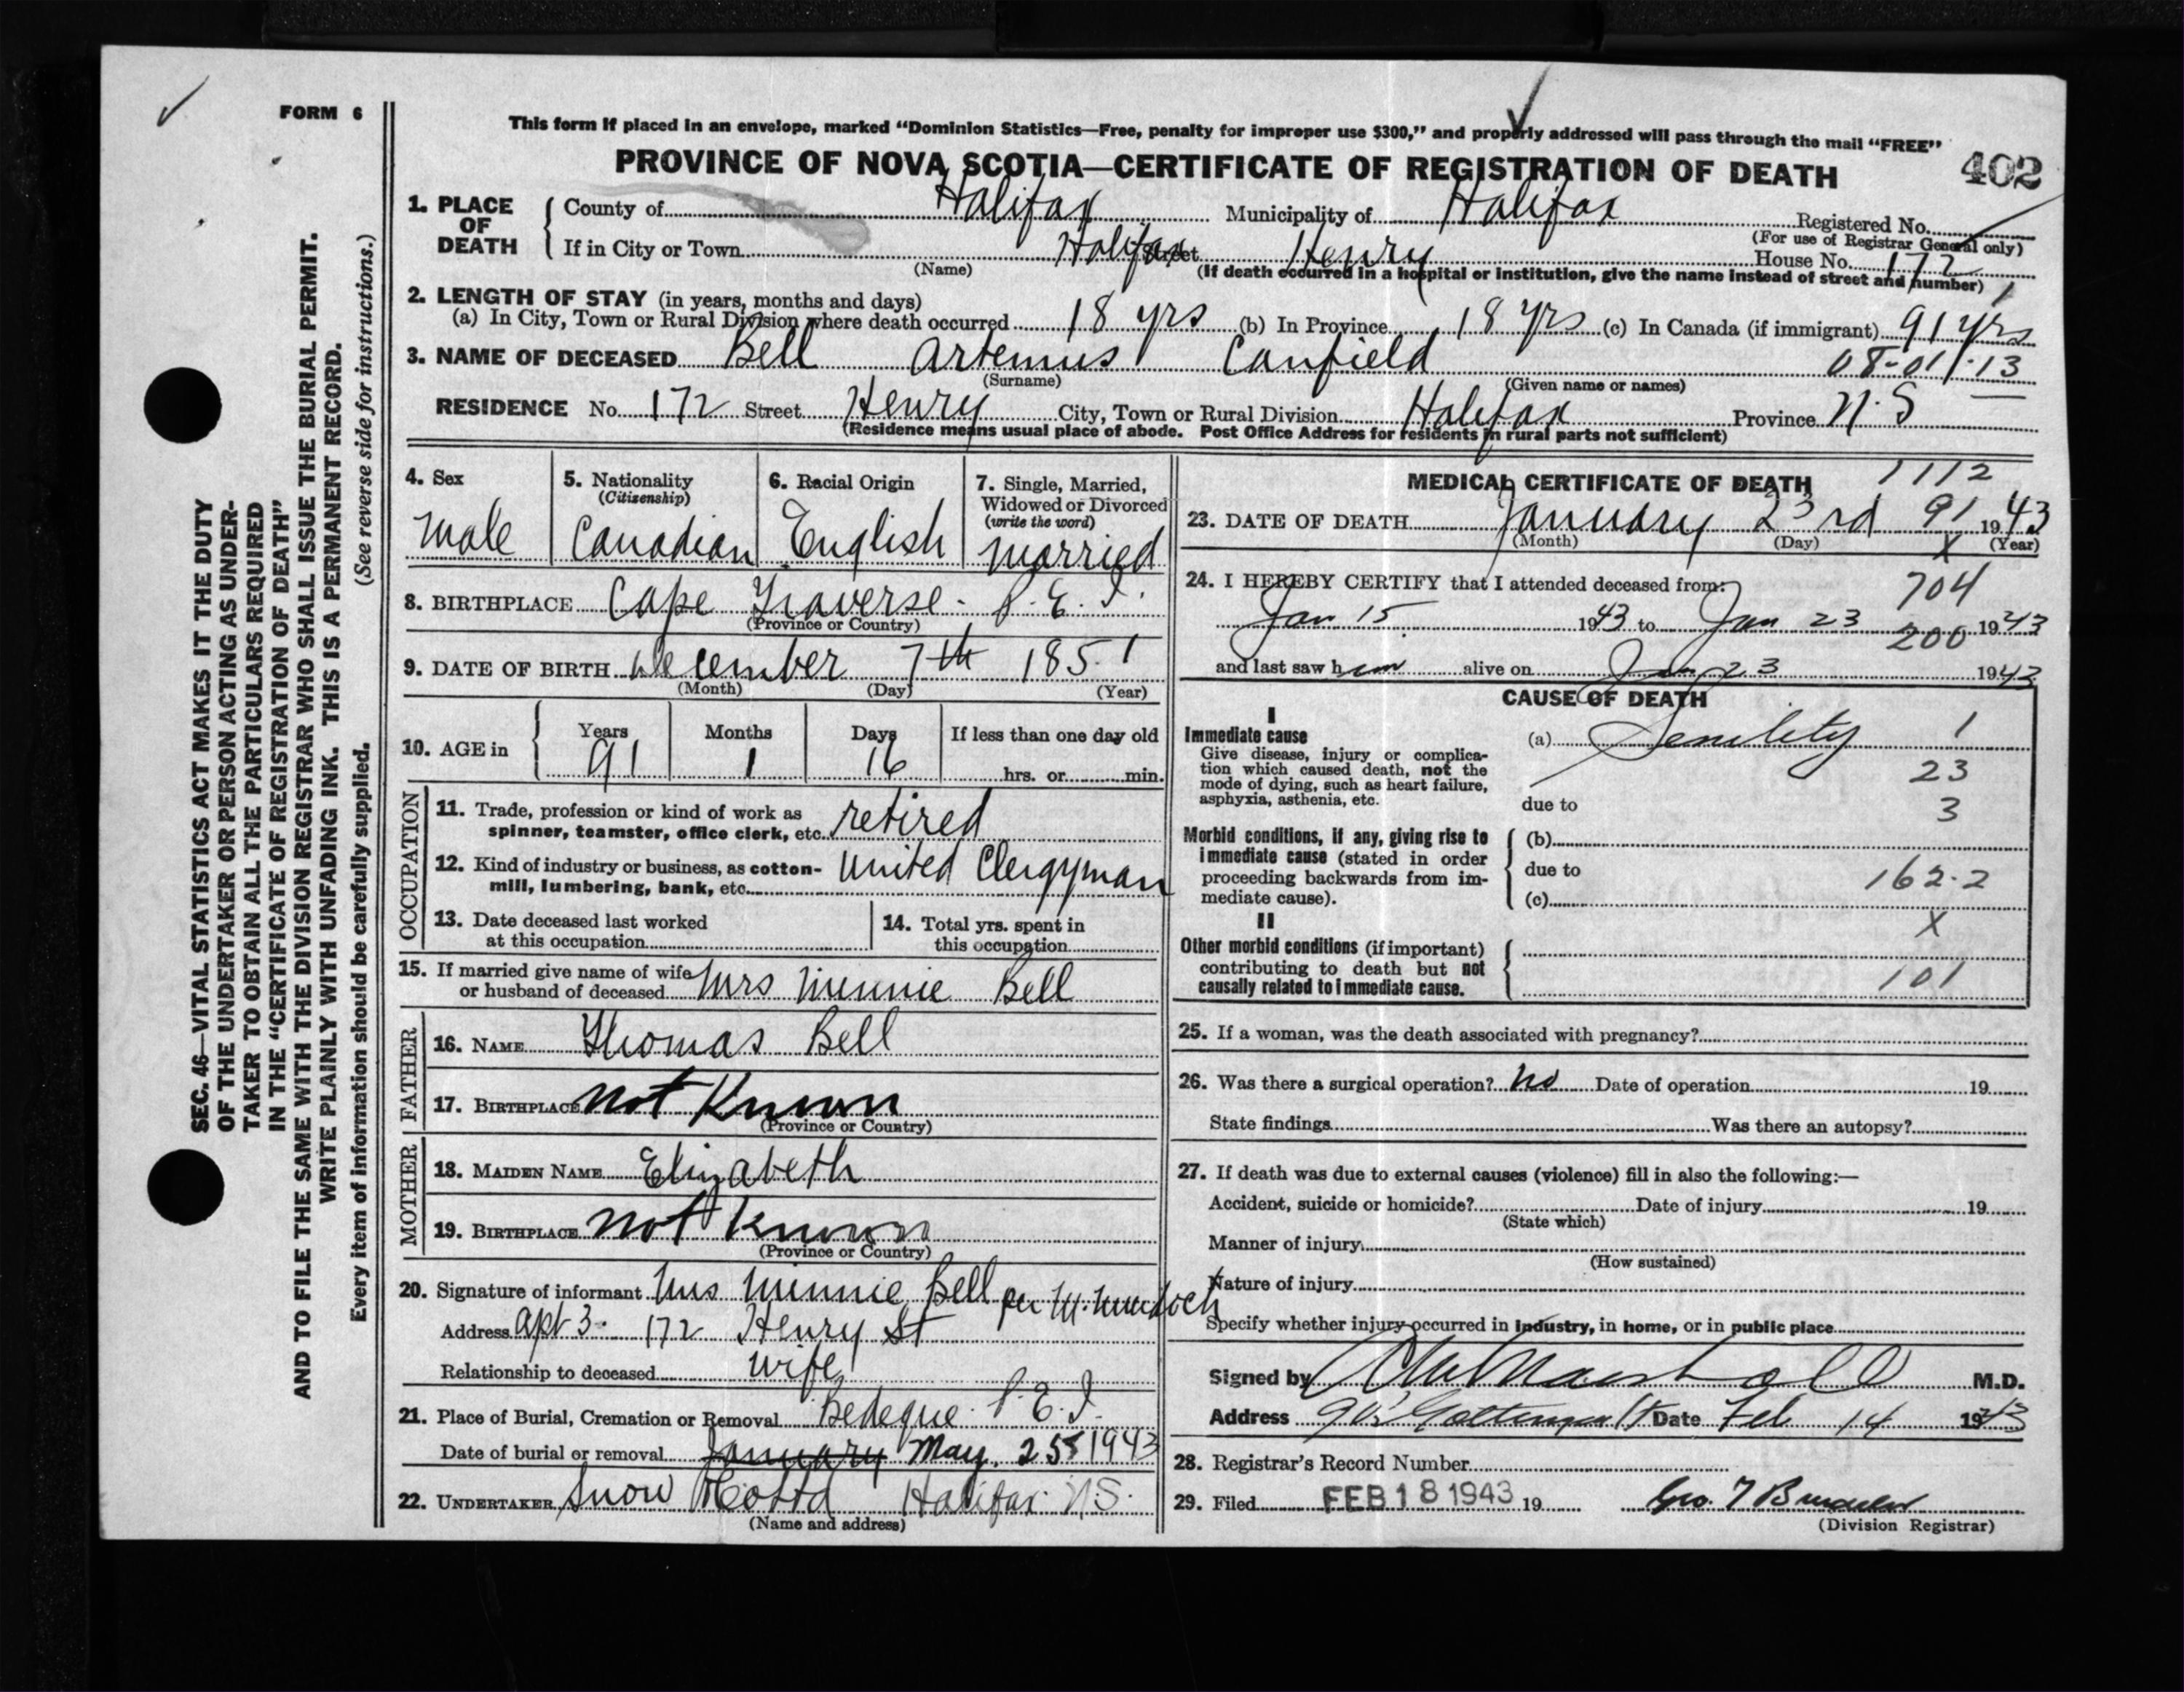 FORM 6
This form if placed in an envelope, marked "Dominion Statistics—Free, penalty for improper use $300," and properly addressed will pass through the mail "FREE"
PROVINCE OF NOVA SCOTIA—CERTIFICATE OF REGISTRATION OF DEATH
402
1. PLACE OF DEATH
County of Halifax Municipality of Halifax Registered No.
(For use of Registrar General only)
If in City or Town Halifax Street Henry House No. 172
(Name) (If death occurred in a hospital or institution, give the name instead of street and number)
2. LENGTH OF STAY (in years, months and days)
(a) In City, Town or Rural Division where death occurred 18 yrs (b) In Province 18 yrs (c) In Canada (if immigrant) 91 yrs
3. NAME OF DECEASED Bell Artemus Canfield 08-01-13
(Surname) (Given name or names)
RESIDENCE No. 172 Street Henry City, Town or Rural Division Halifax Province N.S
(Residence means usual place of abode. Post Office Address for residents in rural parts not sufficient)
4. Sex
Male
5. Nationality
(Citizenship)
Canadian
6. Racial Origin
English
7. Single, Married,
Widowed or Divorced
(write the word)
married
8. BIRTHPLACE Cape Traverse. P.E.I.
(Province or Country)
9. DATE OF BIRTH December 7th 1851
(Month) (Day) (Year)
10. AGE in
Years Months Days If less than one day old
91 1 16 hrs. or min.
OCCUPATION
11. Trade, profession or kind of work as
spinner, teamster, office clerk, etc. retired
12. Kind of industry or business, as cotton-
mill, lumbering, bank, etc. United Clergyman
13. Date deceased last worked
at this occupation
14. Total yrs. spent in
this occupation
15. If married give name of wife
or husband of deceased Mrs Minnie Bell
FATHER
16. NAME Thomas Bell
17. BIRTHPLACE not Known
(Province or Country)
MOTHER
18. MAIDEN NAME Elizabeth
19. BIRTHPLACE not Known
(Province or Country)
20. Signature of informant Mrs Minnie Bell per M. Murdoch
Address apt 3. 172 Henry St
Relationship to deceased wife
21. Place of Burial, Cremation or Removal Bedeque. P.E.I.
Date of burial or removal January May. 25 1943
22. UNDERTAKER Snow Halifax. N.S.
(Name and address)
MEDICAL CERTIFICATE OF DEATH 1112
23. DATE OF DEATH January 23rd 91 1943
(Month) (Day) X (Year)
24. I HEREBY CERTIFY that I attended deceased from: 704
Jan 15 1943 to Jan 23 200 1943
and last saw him alive on Jan 23 1943
CAUSE OF DEATH
I
Immediate cause
Give disease, injury or complica-
tion which caused death, not the
mode of dying, such as heart failure,
asphyxia, asthenia, etc.
(a) Senility 1
23
due to 3
Morbid conditions, if any, giving rise to
immediate cause (stated in order
proceeding backwards from im-
mediate cause).
(b)
due to 162.2
(c)
X
II
Other morbid conditions (if important)
contributing to death but not
causally related to immediate cause.
101
25. If a woman, was the death associated with pregnancy?
26. Was there a surgical operation? No Date of operation 19
State findings Was there an autopsy?
27. If death was due to external causes (violence) fill in also the following:—
Accident, suicide or homicide? Date of injury 19
(State which)
Manner of injury
(How sustained)
Nature of injury
Specify whether injury occurred in industry, in home, or in public place
Signed by Marshall M.D.
Address Date Feb 14 1943
28. Registrar's Record Number
29. Filed FEB 18 1943 19 Geo.
(Division Registrar)
SEC. 46—VITAL STATISTICS ACT MAKES IT THE DUTY
OF THE UNDERTAKER OR PERSON ACTING AS UNDER-
TAKER TO OBTAIN ALL THE PARTICULARS REQUIRED
IN THE "CERTIFICATE OF REGISTRATION OF DEATH"
AND TO FILE THE SAME WITH THE DIVISION REGISTRAR WHO SHALL ISSUE THE BURIAL PERMIT.
WRITE PLAINLY WITH UNFADING INK. THIS IS A PERMANENT RECORD.
Every item of information should be carefully supplied. (See reverse side for instructions.)